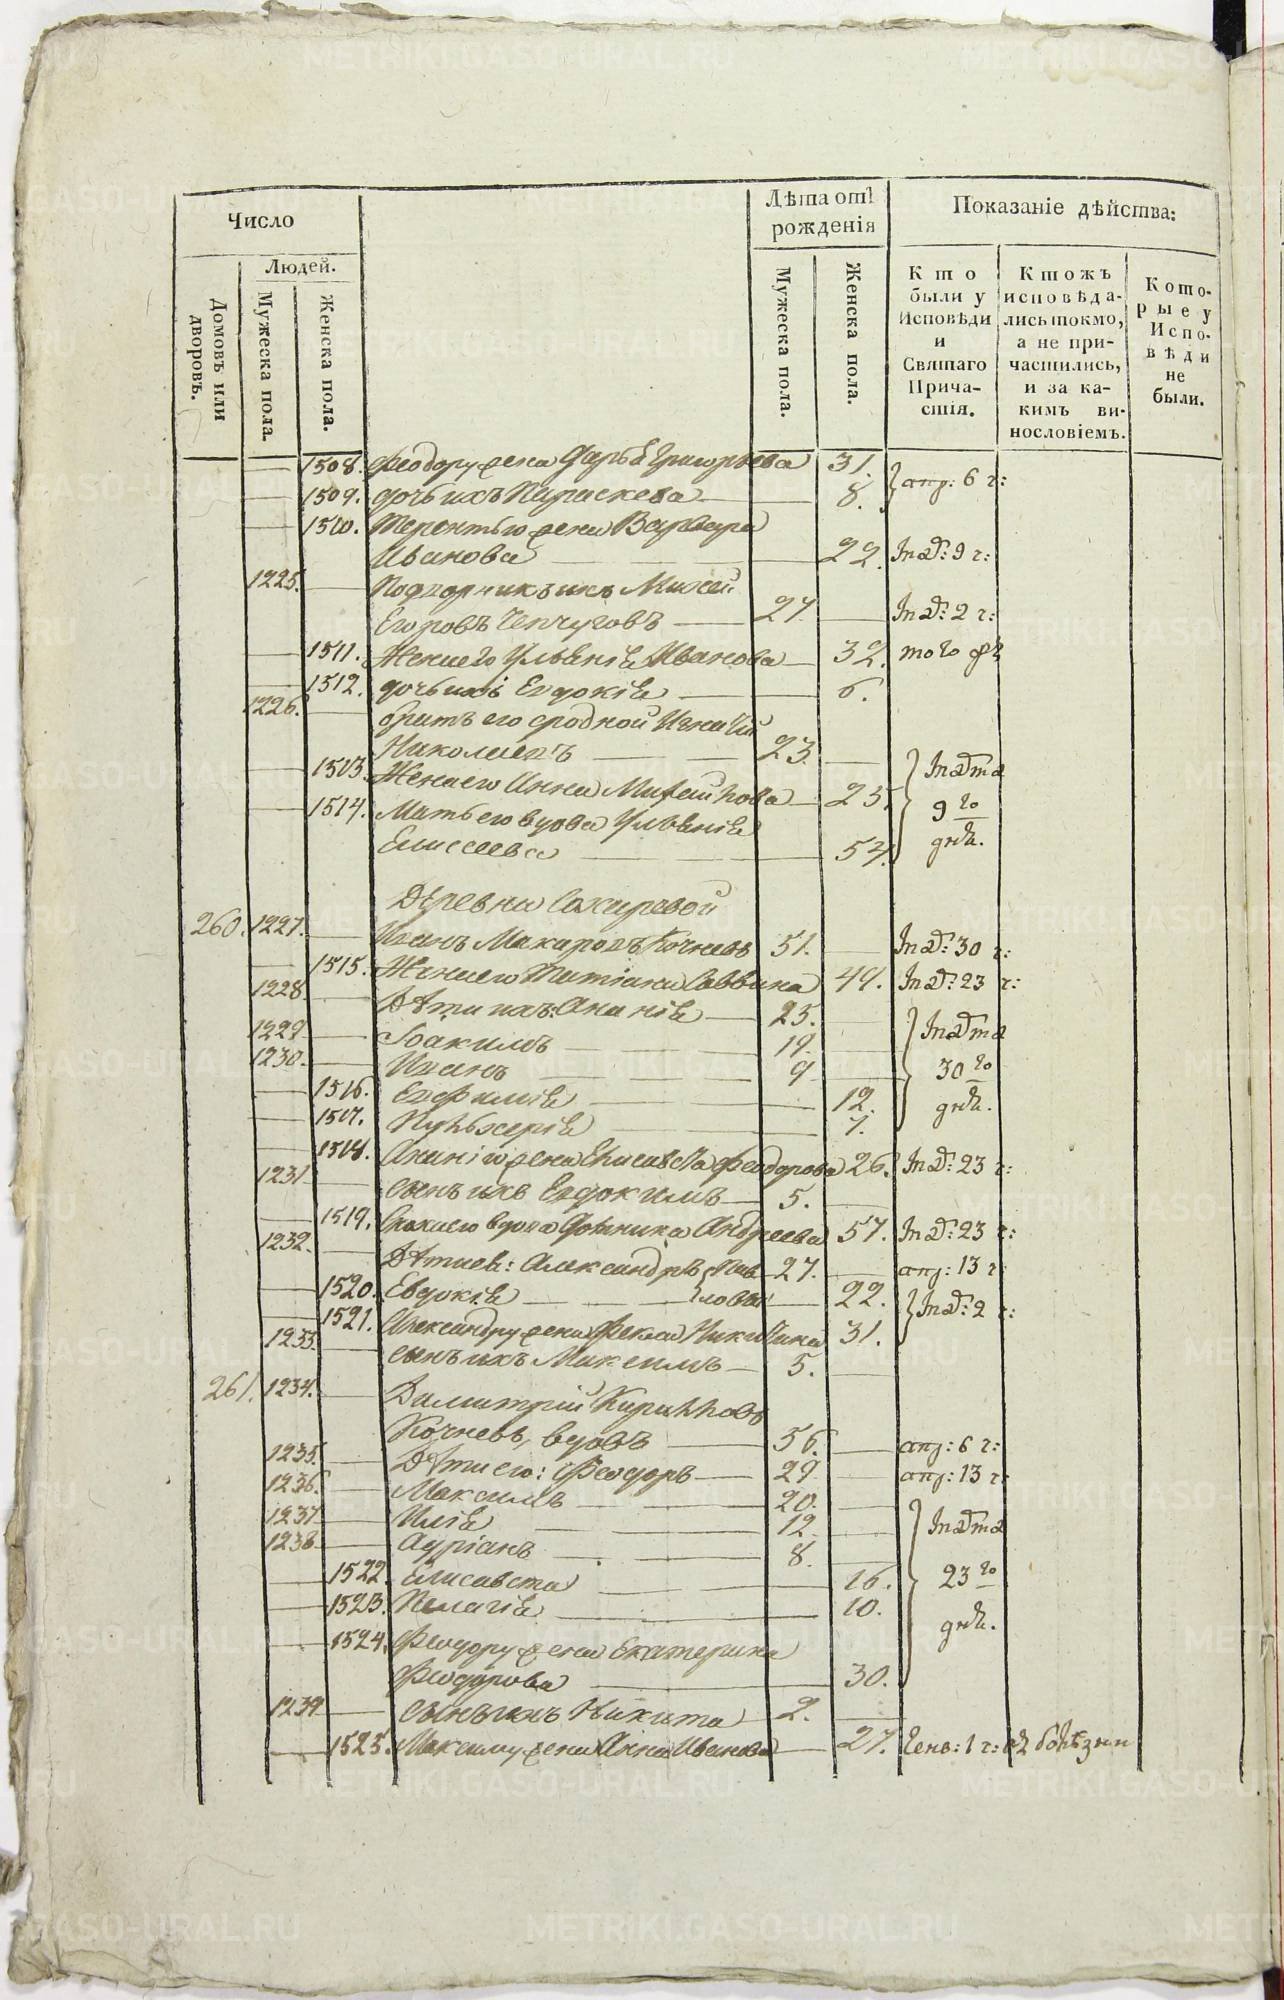 METRIKI.GASO-URAL.RU
Число
Лѣта отъ рожденія
Показаніе дѣйства:
Людей.
Домовъ или дворовъ.
Мужеска пола.
Женска пола.
Мужеска пола.
Женска пола.
Кто были у Исповѣди и Святаго Причастія.
Ктожъ исповѣдались токмо, а не причастились, и за какимъ винословіемъ.
Которые у Исповѣди не были.
1508. Феодору жена Дарья Григорьева 31. апр: 6 г:
1509. дочь ихъ Параскева 8.
1510. Терентью жена Варвара
Иванова 22. 9 г:
1225. Подворникъ ихъ Михей
Егоровъ Чепчуговъ 27. 2 г:
1511. Жена его Ульянія Иванова 32. того
1512. дочь ихъ Евдокія 6.
1226. братъ его сродной Игнатій
Николаевъ 23.
1513. Жена его Анна Михайлова 25. 9 го
1514. Мать его вдова Ульянія
Елисеева 54. дня.
Деревни Сохаревой
260. 1227. Иванъ Макаровъ Кочневъ 51. 30 г:
1515. Жена его Татіана Саввина 49. 23 г:
1228. Дѣти ихъ: Ананія 25.
1229. Іоакимъ 19.
1230. Иванъ 9. 30 го
1516. Евфимія 12. дня.
1517. Пульхерія 7.
1518. Ананію жена Елисавета Феодорова 26. 23 г:
1231 сынъ ихъ Евдокимъ 5.
1519. вдова Домника Андреева 57. 23 г:
1232. Дѣти ев: Александръ Пав 27. апр: 13 г:
1520. Евдокія ловы 22. 2 г:
1521. Александру жена Фекла Никитина 31.
1233. сынъ ихъ Максимъ 5.
261. 1234. Димитрій Кирилловъ
Кочневъ, вдовъ 56. апр: 6 г:
1235. Дѣти его: Феодоръ 29. апр: 13 г:
1236. Максимъ 20.
1237 Илія 12.
1238. Адріанъ 8.
1522. Елисавета 16. 23 го
1523. Пелагія 10.
1524. Феодору жена Екатерина дня.
Феодорова 30.
1239 сынъ ихъ Никита 2.
1525. Максиму жена Анна Иванова 27. Генв: 1 г: болѣзни